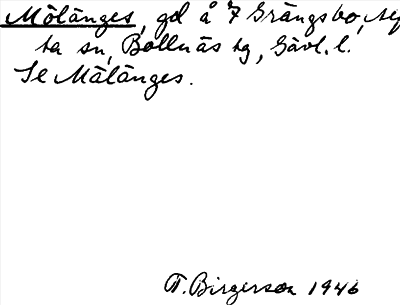 Mölänges, gd å 7 Grängsbo, Alf
ta sn, Bollnäs tg, Gävl. l.
Se Mälänges.
T. Birgerson 1946